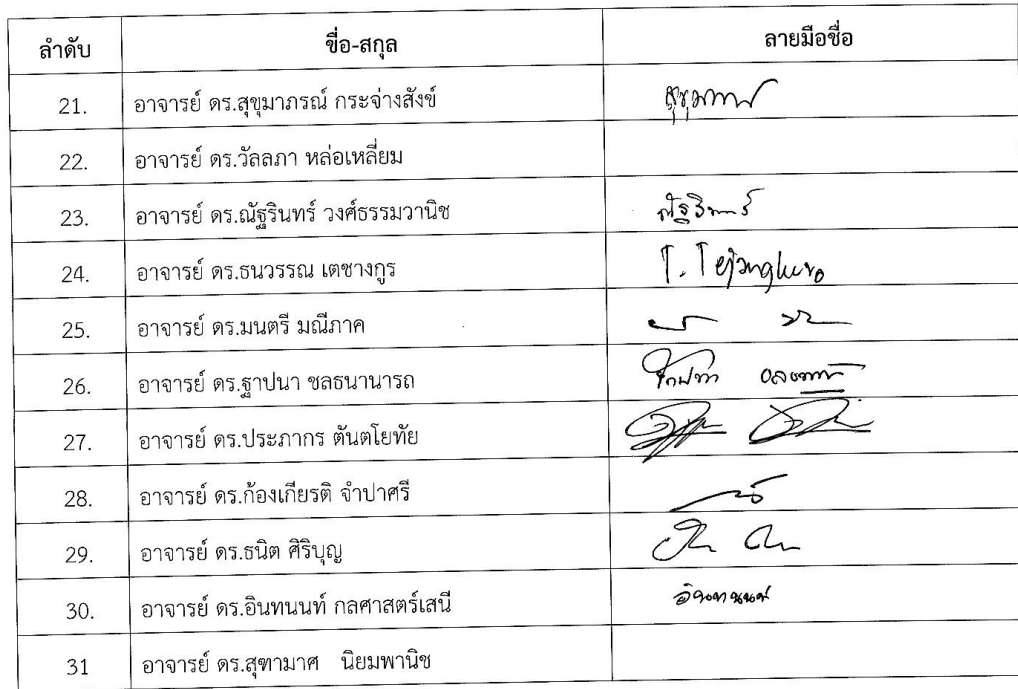 ลำดับ ชื่อ-สกุล ลายมือชื่อ
21. อาจารย์ ดร.สุขุมาภรณ์ กระจ่างสังข์
22. อาจารย์ ดร.วัลลภา หล่อเหลี่ยม
23. อาจารย์ ดร.ณัฐรินทร์ วงศ์ธรรมวานิช
24. อาจารย์ ดร.ธนวรรณ เตชางกูร
25. อาจารย์ ดร.มนตรี มณีภาค
26. อาจารย์ ดร.ฐาปนา ชลธนานารถ
27. อาจารย์ ดร.ประภากร ตันตโยทัย
28. อาจารย์ ดร.ก้องเกียรติ จำปาศรี
29. อาจารย์ ดร.ธนิต ศิริบุญ
30. อาจารย์ ดร.อินทนนท์ กลศาสตร์เสนี อินทนนท์
31 อาจารย์ ดร.สุฑามาศ นิยมพานิช